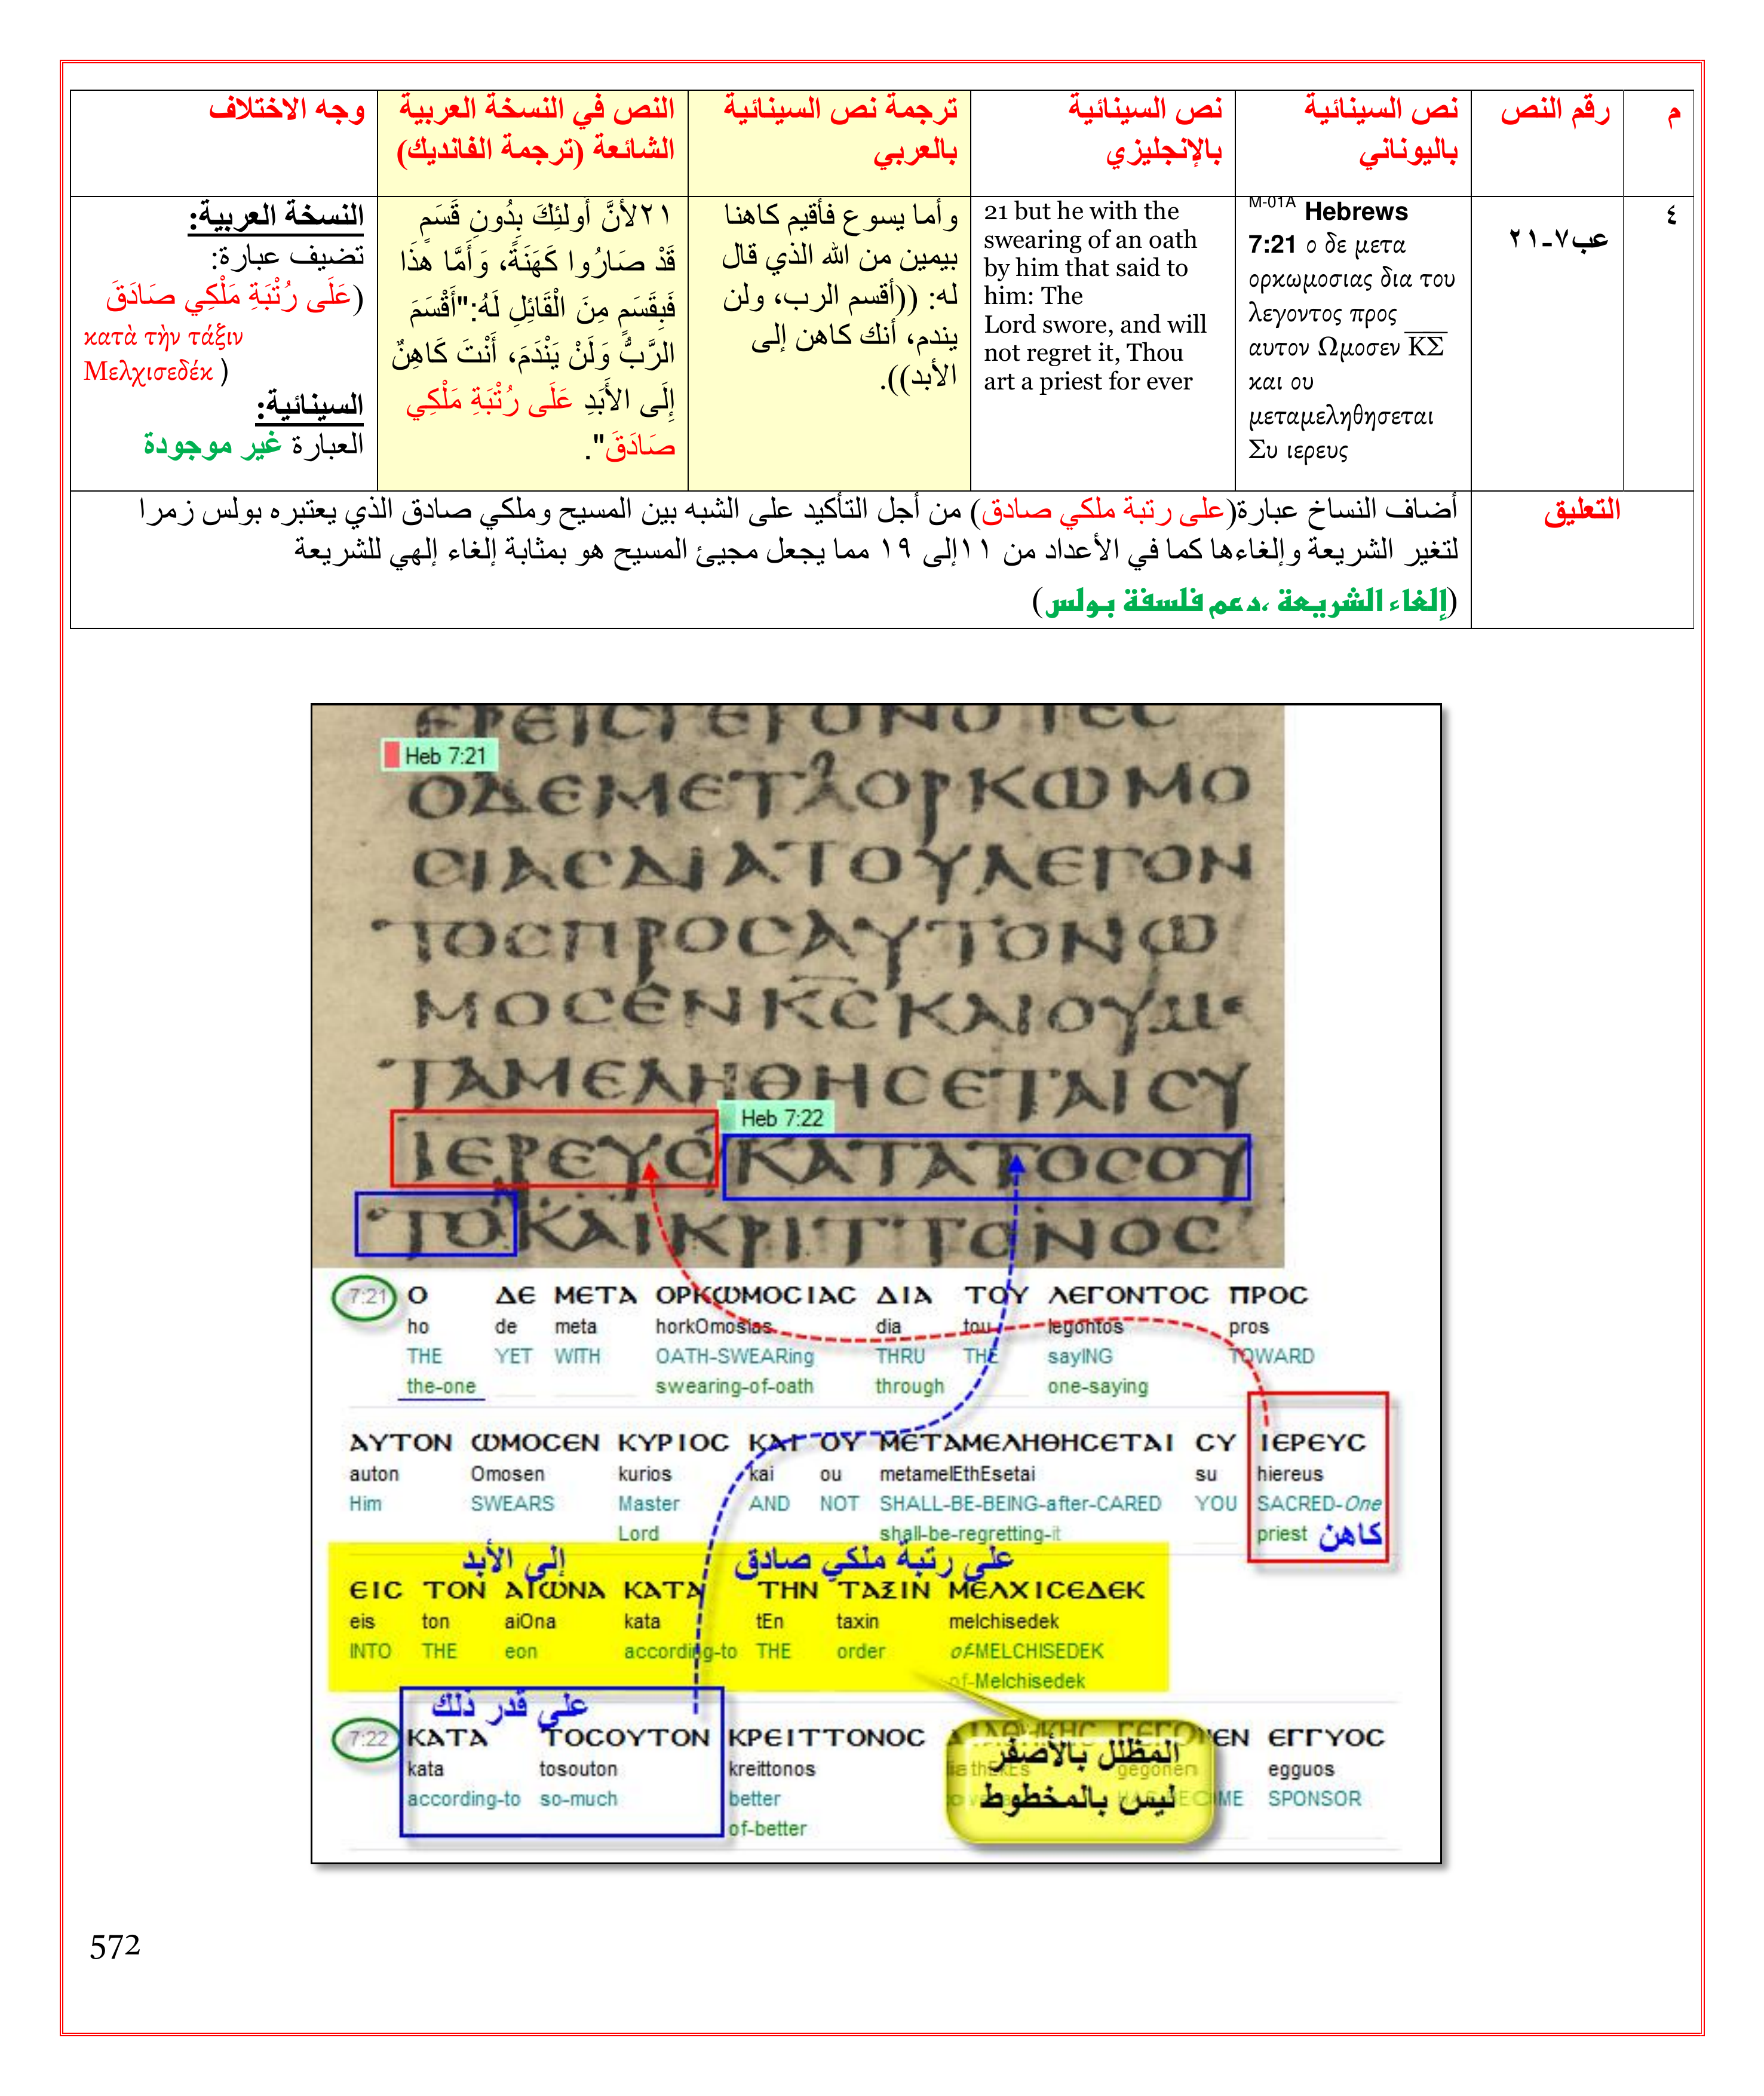 م
رقم النص
نص السينائية
باليوناني
نص السينائية
بالإنجليزي
ترجمة نص السينائية
بالعربي
النص في النسخة العربية
الشائعة (ترجمة الفانديك)
وجه الاختلاف
٤
عب٧-٢١
M-01A Hebrews
7:21 ο δε μετα
ορκωμοσιας δια του
λεγοντος προς
αυτον Ωμοσεν ΚΣ
και ου
μεταμεληθησεται
Συ ιερευς
21 but he with the
swearing of an oath
by him that said to
him: The
Lord swore, and will
not regret it, Thou
art a priest for ever
وأما يسوع فأقيم كاهنا
بيمين من الله الذي قال
له: ((أقسم الرب، ولن
يندم، أنك كاهن إلى
الأبد)).
٢١لأَنَّ أُولئِكَ بِدُونِ قَسَمٍ
قَدْ صَارُوا كَهَنَةً، وَأَمَّا هَذَا
فَبِقَسَمٍ مِنَ الْقَائِلِ لَهُ:"أَقْسَمَ
الرَّبُّ وَلَنْ يَنْدَمَ، أَنْتَ كَاهِنٌ
إِلَى الأَبَدِ عَلَى رُتْبَةِ مَلْكِي
صَادَقَ".
النسخة العربية:
تضيف عبارة:
(عَلَى رُتْبَةِ مَلْكِي صَادَقَ
κατὰ τὴν τάξιν
Μελχισεδέκ )
السينائية:
العبارة غير موجودة
التعليق
أضاف النساخ عبارة(على رتبة ملكي صادق) من أجل التأكيد على الشبه بين المسيح وملكي صادق الذي يعتبره بولس زمرا
لتغير الشريعة وإلغاءها كما في الأعداد من ١١إلى ١٩ مما يجعل مجيئ المسيح هو بمثابة إلغاء إلهي للشريعة
(إلغاء الشريعة ،دعم فلسفة بولس)
ΕΡΕΙCΓΕΓΟΝΟΤΕC
Heb 7:21
ΟΔΕΜΕΤΑΟΡΚΩΜΟ
CΙΑCΔΙΑΤΟΥΛΕΓΟΝ
ΤΟCΠΡΟCΑΥΤΟΝΩ
ΜΟCΕΝΚCΚΑΙΟΥΜΕ
ΤΑΜΕΛΗΘΗCΕΤΑΙCΥ
Heb 7:22
ΙΕΡΕΥCΚΑΤΑΤΟCΟΥ
ΤΟΚΑΙΚΡΙΤΤΟΝΟC
7:21 Ο ΔΕ ΜΕΤΑ ΟΡΚΩΜΟCΙΑC ΔΙΑ ΤΟΥ ΛΕΓΟΝΤΟC ΠΡΟC
ho de meta horkOmosias dia tou legontos pros
THE YET WITH OATH-SWEARing THRU THE sayING TOWARD
the-one swearing-of-oath through one-saying
ΑΥΤΟΝ ΩΜΟCΕΝ ΚΥΡΙΟC ΚΑΙ ΟΥ ΜΕΤΑΜΕΛΗΘΗCΕΤΑΙ CΥ ΙΕΡΕΥC
auton Omosen kurios kai ou metamelEthEsetai su hiereus
Him SWEARS Master AND NOT SHALL-BE-BEING-after-CARED YOU SACRED-One
Lord shall-be-regretting-it priest كاهن
إلى الأبد على رتبة ملكي صادق
ΕΙC ΤΟΝ ΑΙΩΝΑ ΚΑΤΑ ΤΗΝ ΤΑΞΙΝ ΜΕΛΧΙCΕΔΕΚ
eis ton aiOna kata tEn taxin melchisedek
INTO THE eon according-to THE order of-MELCHISEDEK
of-Melchisedek
على قدر ذلك
7:22 ΚΑΤΑ ΤΟCΟΥΤΟΝ ΚΡΕΙΤΤΟΝΟC ΔΙΑΘΗΚΗC ΓΕΓΟΝΕΝ ΕΓΓΥΟC
kata tosouton kreittonos diathEkEs gegonen egguos
according-to so-much better SPONSOR
of-better
المظلل بالأصفر
ليس بالمخطوط
572